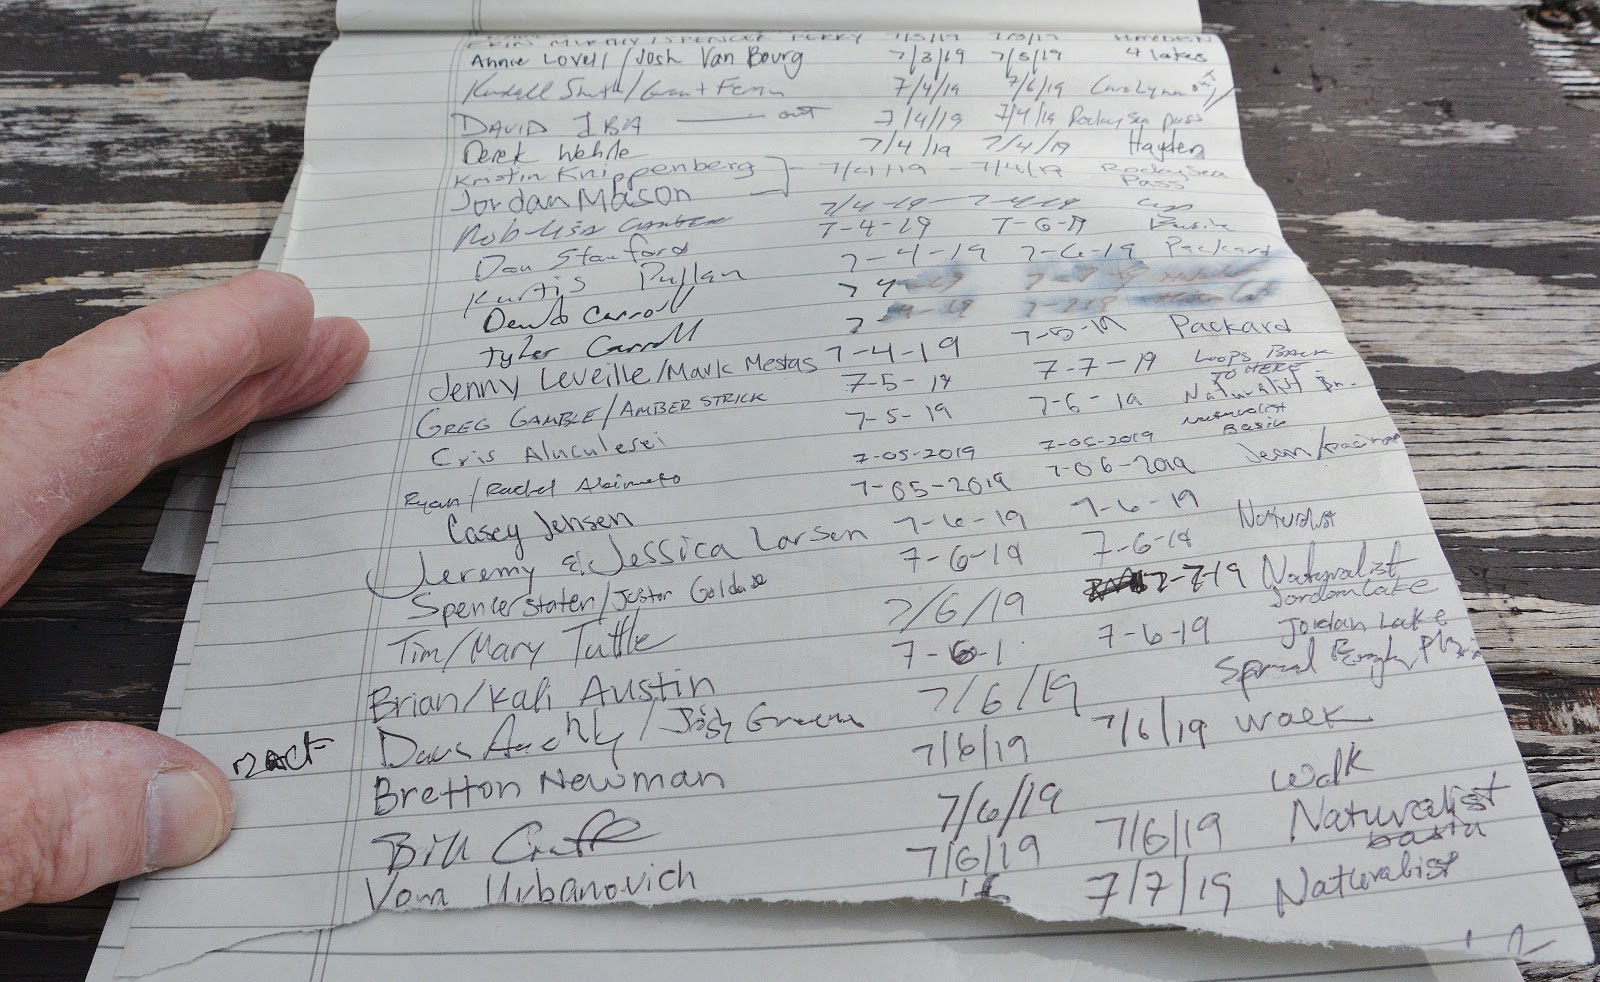 ERIN MURPHY / SPENCER PERRY 7/3/19 7/3/19 HAYDEN
Annie Lovell / Josh Van Bourg 7/3/19 7/5/19 4 lakes
Kendall Smith / Grant Fenn 7/4/19 7/6/19
DAVID IBA out 7/4/19 7/4/19 Rocky Sea pass
Derek Wehrle 7/4/19 7/4/19 Hayden
Kristin Knippenberg 7/4/19 - 7/4/19 Rocky Sea
Jordan Mason Pass
7-4-19 - 7-4-19
7-4-19 7-6-19 Basin
Don Stanford 7-4-19 7-6-19 Packard
Kurtis Pullan 7 4
David Carroll 7
Tyler Carroll 7-4-19 7-5-19 Packard
Jenny Leveille / Mark Mestas 7-5-19 7-7-19 LOOPS BACK
TO HERE
GREG GAMBLE / AMBER STRICK 7-5-19 7-6-19 Naturalist Bn.
Cris Aluculesei 7-05-2019 7-05-2019 Naturalist
Basin
Ryan / Rachel 7-05-2019 7-06-2019 Jean /
Casey Jensen 7-6-19 7-6-19
Jeremy & Jessica Larsen 7-6-19 7-6-19 Naturalist
Spencer Staten / Justin 7/6/19 7-7-19 Naturalist
Jordan Lake
Tim / Mary Tuttle 7-6-1 7-6-19 Jordan Lake
Brian / Kali Austin 7/6/19
Dave / Josh Green 7/6/19 7/6/19 Walk
Bretton Newman 7/6/19 Walk
Bill 7/6/19 7/6/19 Naturalist
basin
Vom Urbanovich 7/7/19 Naturalist